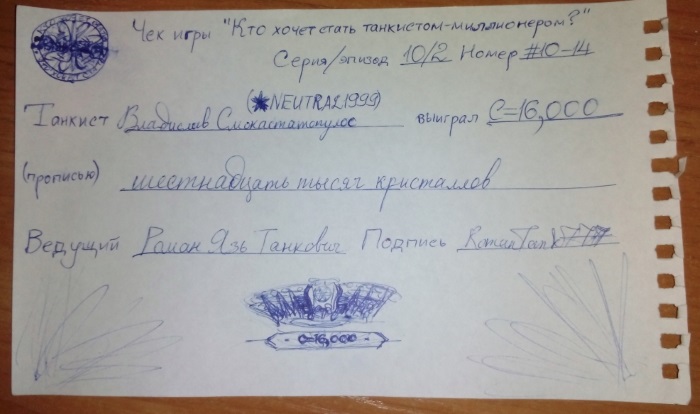 Чек игры "Кто хочет стать танкистом-миллионером?"
Серия/эпизод 10/2 Номер #10-14
(★NEUTRAL1999)
Танкист Владислав выиграл C=16,000
(прописью) шестнадцать тысяч кристаллов
Ведущий Роман Язь Танкович Подпись
- C=16,000 -